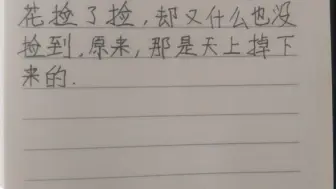 花捡了捡，却又什么也没
捡到，原来，那是天上掉下
来的．